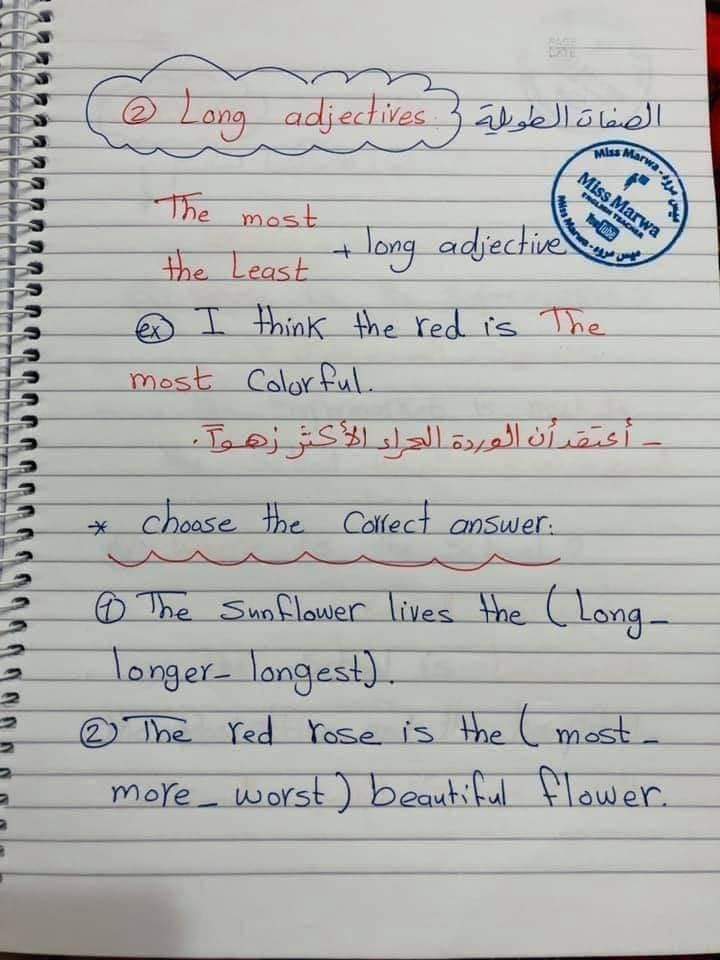 PAGE
DATE
② Long adjectives. الصفات الطويلة
Miss Marwa - ميس مروة
Miss Marwa
ENGLISH TEACHER
YouTube
Miss Marwa - ميس مروة
The most
+ long adjective
the Least
ex I think the red is The
most Colorful.
- أعتقد أن الوردة الحمراء الأكثر زهواً.
* choose the Correct answer:
① The Sunflower lives the (Long-
longer- longest).
② The red rose is the ( most -
more - worst ) beautiful flower.